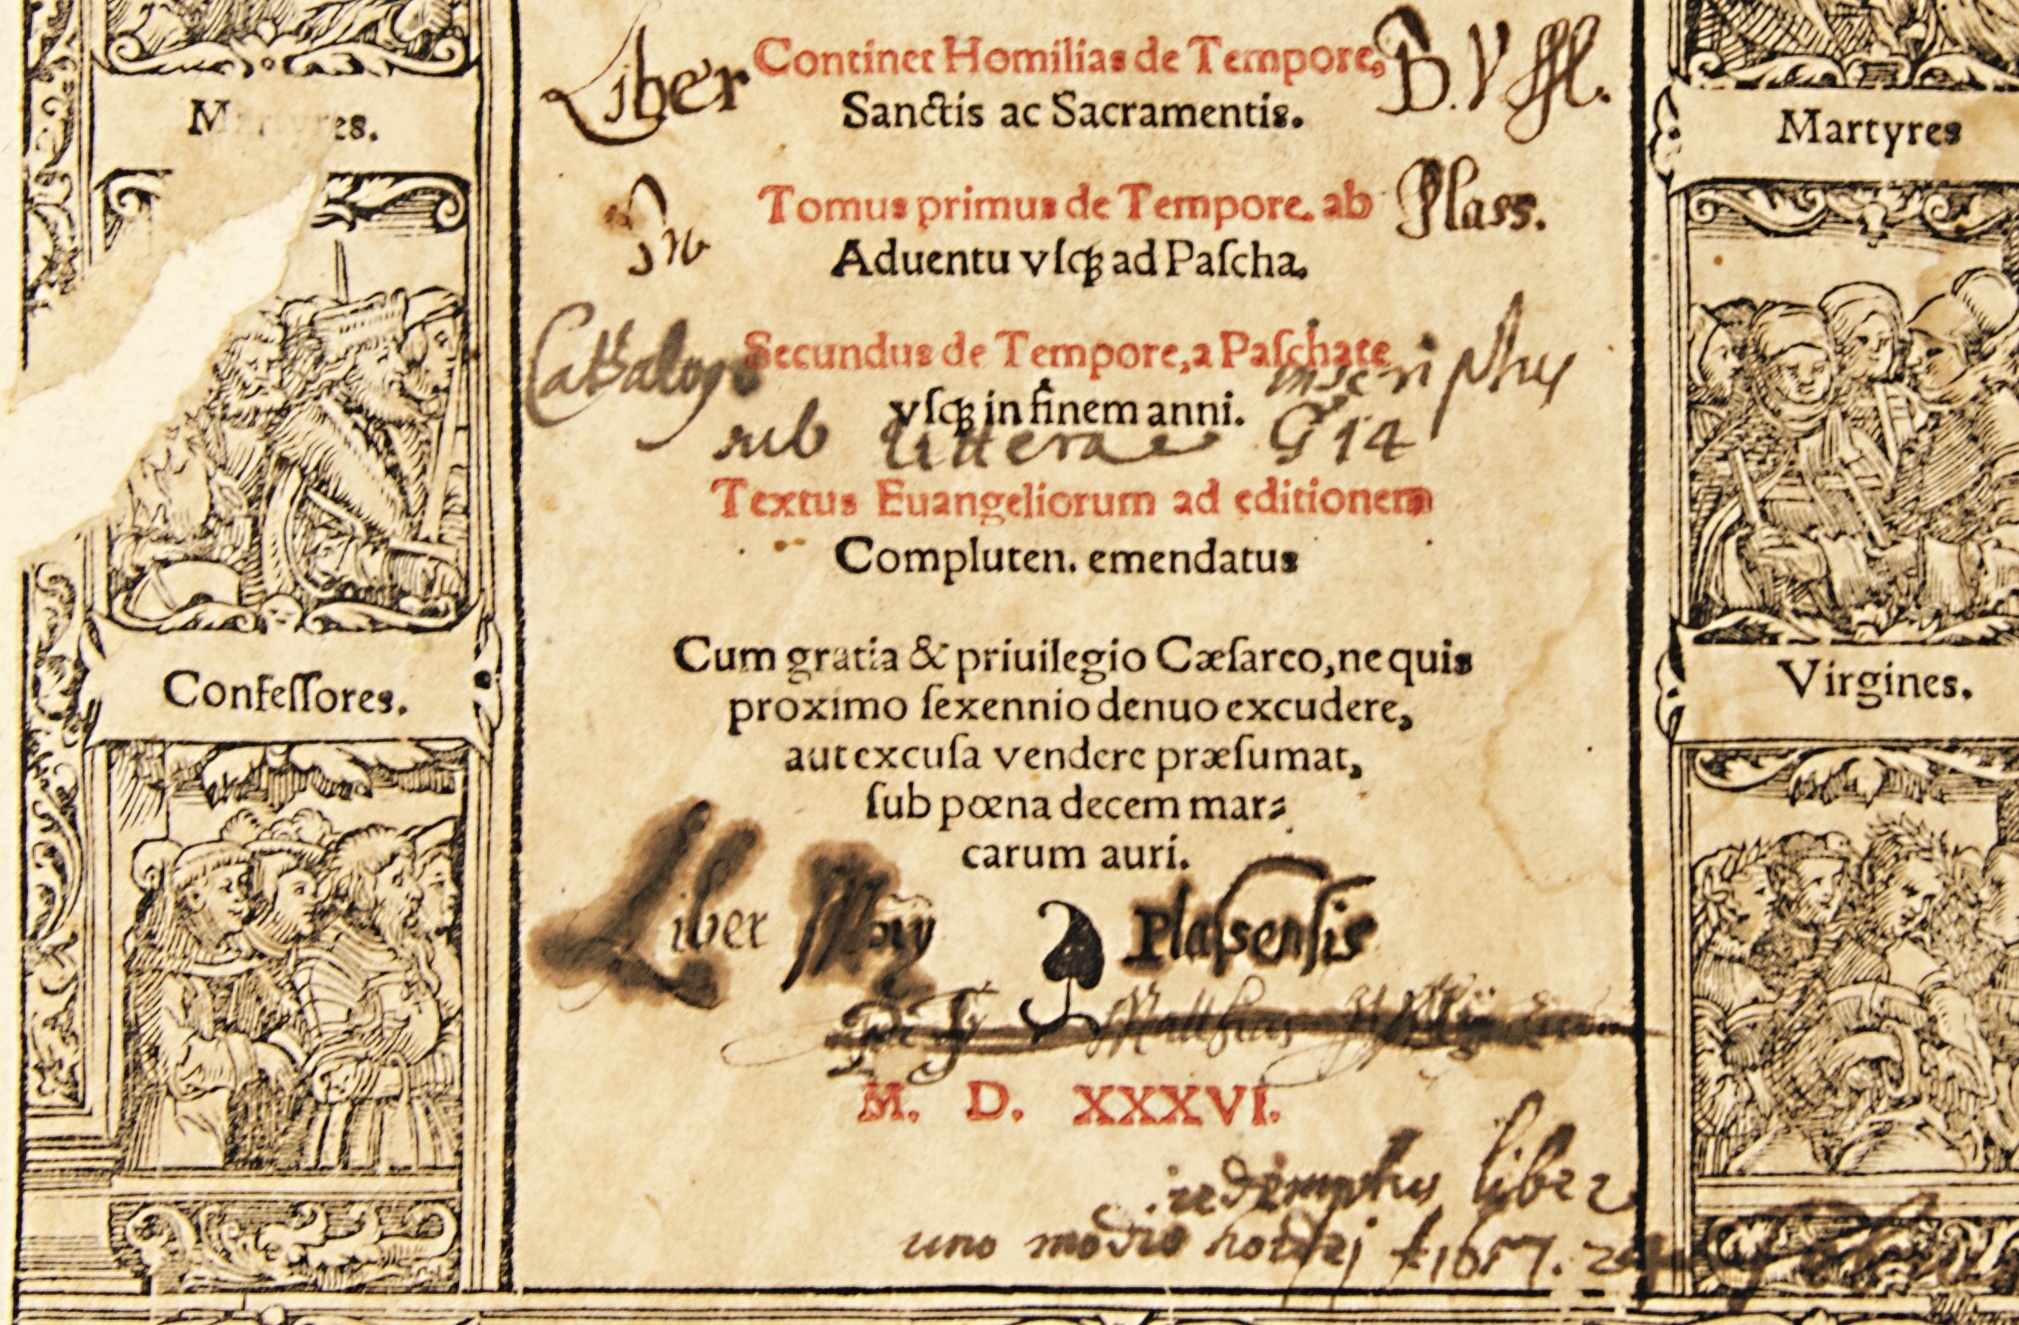 Liber Continet Homilias de Tempore, B. V
Martyres.
Sanctis ac Sacramentis.
Martyres
In Tomus primus de Tempore. ab Plass.
Aduentu vſqꝫ ad Paſcha.
Cathalogo Secundus de Tempore, a Paſchate inscriptus
vſqꝫ in finem anni.
sub littera G 14
Textus Euangeliorum ad editionem
Compluten. emendatus
Cum gratia & priuilegio Cæſareo, ne quis
Confeſſores.
Virgines.
proximo ſexennio denuo excudere,
aut excuſa vendere præſumat,
ſub pœna decem mar⸗
carum auri.
Liber Plaſsenſis
Matthæus
M. D. XXXVI.
redemptus liber
uno modio 1657.